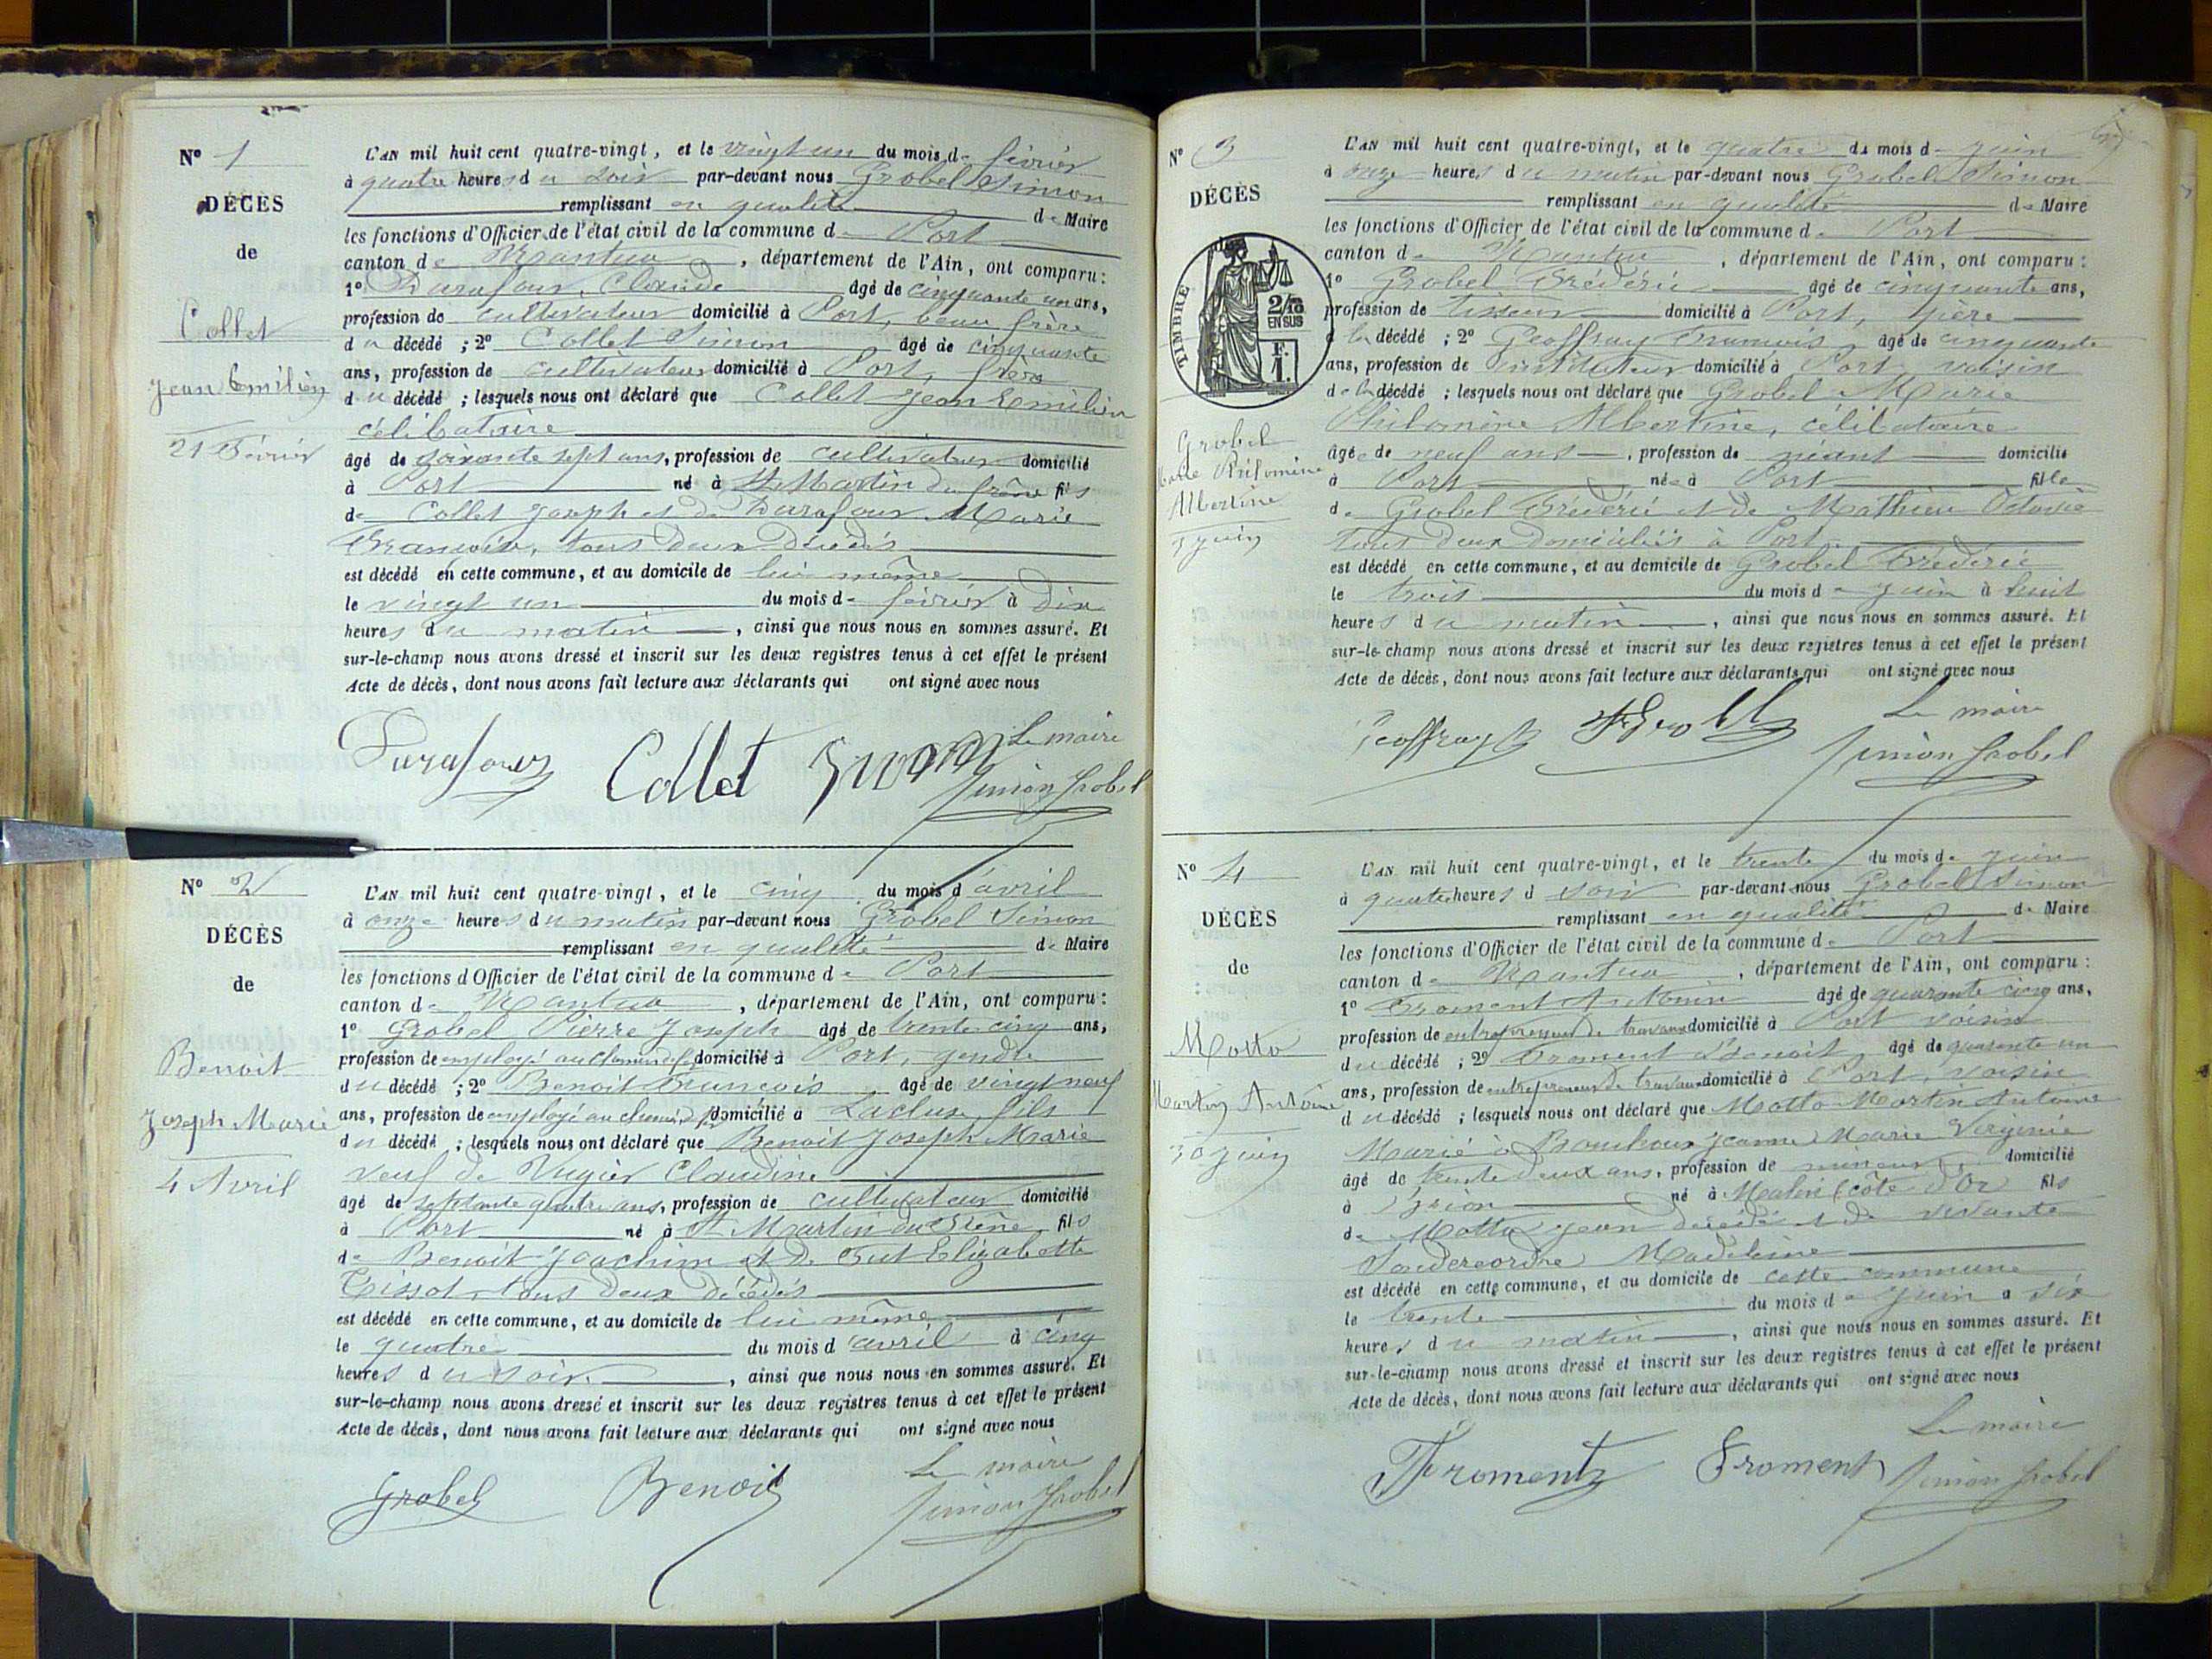 N° 1
DÉCÈS
de
Collet
Jean Emilien
21 Février
L'AN mil huit cent quatre-vingt, et le vingt un du mois de février
à quatre heures du soir par-devant nous Grobel Simon
remplissant en qualité de Maire
les fonctions d'Officier de l'état civil de la commune de Port
canton de Nantua, département de l'Ain, ont comparu :
1° Durafour Claude âgé de cinquante un ans,
profession de cultivateur domicilié à Port, beau frère
du décédé ; 2° Collet Simon âgé de cinquante
ans, profession de cultivateur domicilié à Port, frère
du décédé ; lesquels nous ont déclaré que Collet Jean Emilien
célibataire
âgé de soixante sept ans, profession de cultivateur domicilié
à Port né à St Martin du frêne fils
de Collet Joseph et de Durafour Marie
Françoise, tous deux décédés
est décédé en cette commune, et au domicile de lui même
le vingt un du mois de février à dix
heures du matin, ainsi que nous nous en sommes assuré. Et
sur-le-champ nous avons dressé et inscrit sur les deux registres tenus à cet effet le présent
Acte de décès, dont nous avons fait lecture aux déclarants qui ont signé avec nous
Le maire
Durafour Collet Simon Simon Grobel
N° 2
DÉCÈS
de
Benoit
Joseph Marie
4 Avril
L'AN mil huit cent quatre-vingt, et le cinq du mois d'avril
à onze heures du matin par-devant nous Grobel Simon
remplissant en qualité de Maire
les fonctions d'Officier de l'état civil de la commune de Port
canton de Nantua, département de l'Ain, ont comparu :
1° Grobel Pierre Joseph âgé de trente cinq ans,
profession de employé au chemin de fer domicilié à Port, gendre
du décédé ; 2° Benoit François âgé de vingt neuf
ans, profession de employé au chemin de fer domicilié à Lacluse, fils
du décédé ; lesquels nous ont déclaré que Benoit Joseph Marie
veuf de Claudine
âgé de septante quatre ans, profession de cultivateur domicilié
à Port né à St Martin du Frêne, fils
de Benoit Joachim et de Elizabette
Tissot, tous deux décédés
est décédé en cette commune, et au domicile de lui même
le quatre du mois d'avril à cinq
heures du soir, ainsi que nous nous en sommes assuré. Et
sur-le-champ nous avons dressé et inscrit sur les deux registres tenus à cet effet le présent
Acte de décès, dont nous avons fait lecture aux déclarants qui ont signé avec nous
Le maire
Grobel Benoit Simon Grobel
N° 3
DÉCÈS
TIMBRE
2/10
EN SUS
F.
1.
Grobel
Marie Philomène
Albertine
3 juin
L'AN mil huit cent quatre-vingt, et le quatre du mois de juin
à onze heures du matin par-devant nous Grobel Simon
remplissant en qualité de Maire
les fonctions d'Officier de l'état civil de la commune de Port
canton de Nantua, département de l'Ain, ont comparu :
1° Grobel Fréderic âgé de cinquante ans,
profession de tisseur domicilié à Port, père
de la décédé ; 2° Geoffray François, âgé de cinquante
ans, profession de instituteur domicilié à Port, voisin
de la décédé ; lesquels nous ont déclaré que Grobel Marie
Philomène Albertine, célibataire
âgée de neuf ans, profession de néant domicilié
à Port née à Port fille
de Grobel Fréderic et de Mathieu Octavie
tous deux domiciliés à Port
est décédé en cette commune, et au domicile de Grobel Fréderic
le trois du mois de juin à huit
heures du matin, ainsi que nous nous en sommes assuré. Et
sur-le-champ nous avons dressé et inscrit sur les deux registres tenus à cet effet le présent
Acte de décès, dont nous avons fait lecture aux déclarants qui ont signé avec nous
Le maire
Geoffray F Grobel Simon Grobel
N° 4
DÉCÈS
de
Motto
Martin Antoine
30 juin
L'AN mil huit cent quatre-vingt, et le trente du mois de juin
à quatre heures d soir par-devant nous Grobel Simon
remplissant en qualité de Maire
les fonctions d'Officier de l'état civil de la commune de Port
canton de Nantua, département de l'Ain, ont comparu :
1° Froment Antonin âgé de quarante cinq ans,
profession de entrepreneur de travaux domicilié à Port voisin
du décédé ; 2° Froment Benoit, âgé de quarante un
ans, profession de entrepreneur de travaux domicilié à Port, voisin
du décédé ; lesquels nous ont déclaré que Motto Martin Antoine
Marié à Jeanne Marie Virginie
âgé de trente deux ans, profession de mineur domicilié
à né à (côte d'Or) fils
de Motto Jean décédé et de vivante
Madeleine
est décédé en cette commune, et au domicile de cette commune
le trente du mois de juin à six
heures du matin, ainsi que nous nous en sommes assuré. Et
sur-le-champ nous avons dressé et inscrit sur les deux registres tenus à cet effet le présent
Acte de décès, dont nous avons fait lecture aux déclarants qui ont signé avec nous
Le maire
Froment Froment Simon Grobel